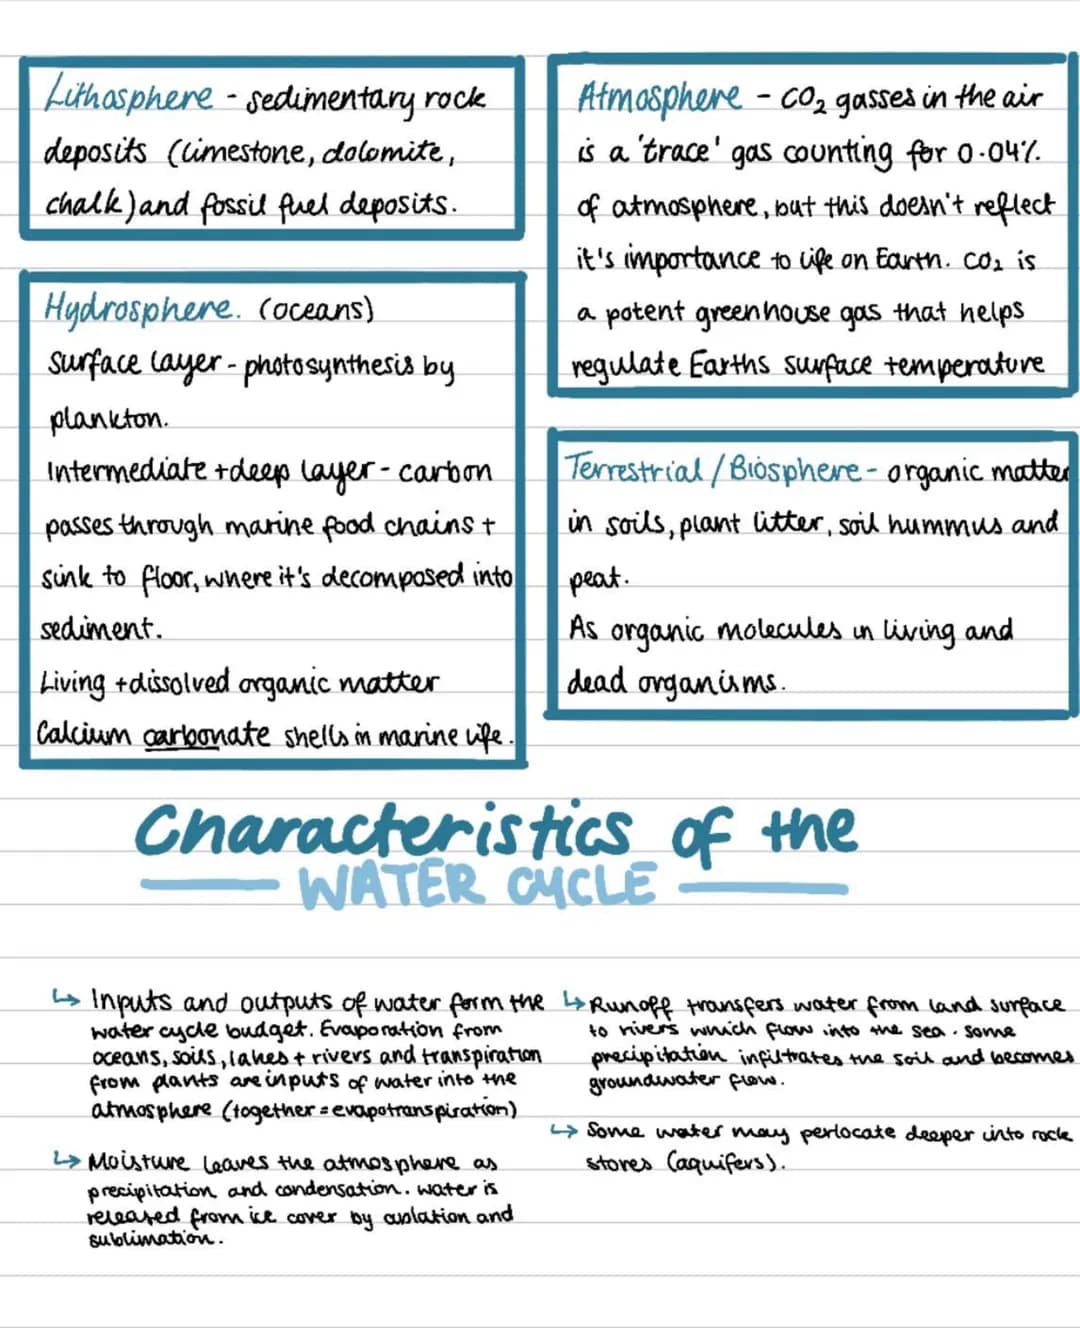 Lithosphere - sedimentary rock
deposits (limestone, dolomite,
chalk) and fossil fuel deposits.
Hydrosphere. (oceans)
Surface layer - photosynthesis by
plankton.
Intermediate + deep layer - carbon
passes through marine food chains +
sink to floor, where it's decomposed into
sediment.
Living + dissolved organic matter
Calcium carbonate shells in marine life.
Atmosphere - CO₂ gasses in the air
is a 'trace' gas counting for 0.04%
of atmosphere, but this doesn't reflect
it's importance to life on Earth. CO₂ is
a potent greenhouse gas that helps
regulate Earths surface temperature
Terrestrial / Biosphere - organic matter
in soils, plant litter, soil hummus and
peat.
As organic molecules in living and
dead organisms.
Characteristics of the
WATER CYCLE
↳ Inputs and outputs of water form the
water cycle budget. Evaporation from
oceans, soils, lakes + rivers and transpiration
from plants are inputs of water into the
atmosphere (together = evapotranspiration)
↳ Moisture leaves the atmosphere as
precipitation and condensation. water is
released from ice cover by ablation and
sublimation.
↳ Runoff transfers water from land surface
to rivers which flow into the sea. Some
precipitation infiltrates the soil and becomes
groundwater flow.
↳ Some water may perlocate deeper into rock
stores (aquifers).